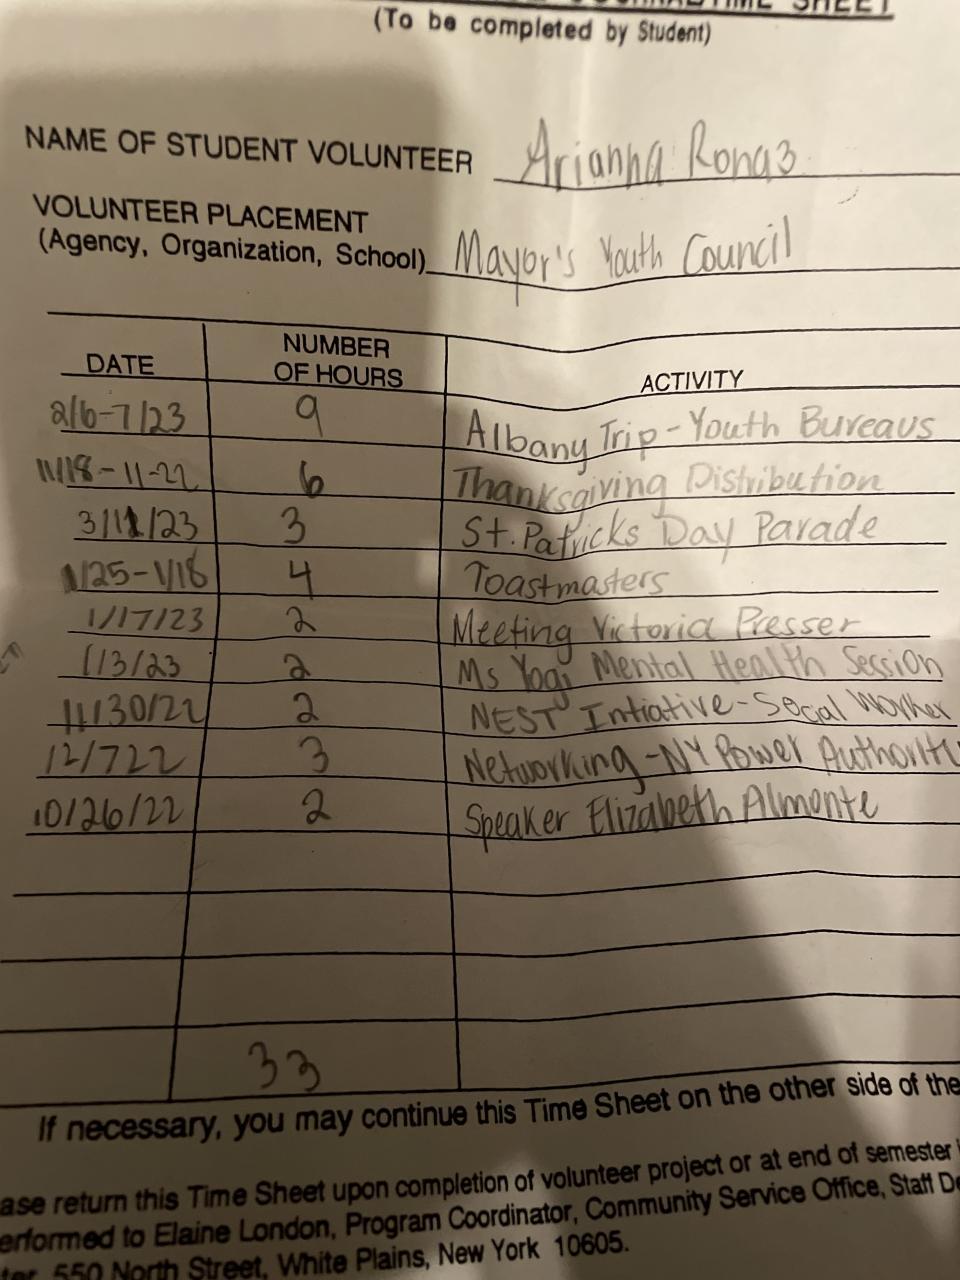 TIME SHEET
(To be completed by Student)
NAME OF STUDENT VOLUNTEER Arianna
VOLUNTEER PLACEMENT
(Agency, Organization, School) Mayor's Youth Council
DATE NUMBER OF HOURS ACTIVITY
2/6-7/23 9 Albany Trip - Youth Bureaus
11/18-11-22 6 Thanksgiving Distribution
3/11/23 3 St. Patricks Day Parade
1/25-1/18 4 Toastmasters
1/17/23 2 Meeting Victoria Presser
1/3/23 2 Ms Yogi Mental Health Session
11/30/22 2 NEST Intiative - Social Worker
12/722 3 Networking - NY Power
10/26/22 2 Speaker Elizabeth Almonte
33
If necessary, you may continue this Time Sheet on the other side of the
ase return this Time Sheet upon completion of volunteer project or at end of semester
erformed to Elaine London, Program Coordinator, Community Service Office, Staff
ter, 550 North Street, White Plains, New York 10605.